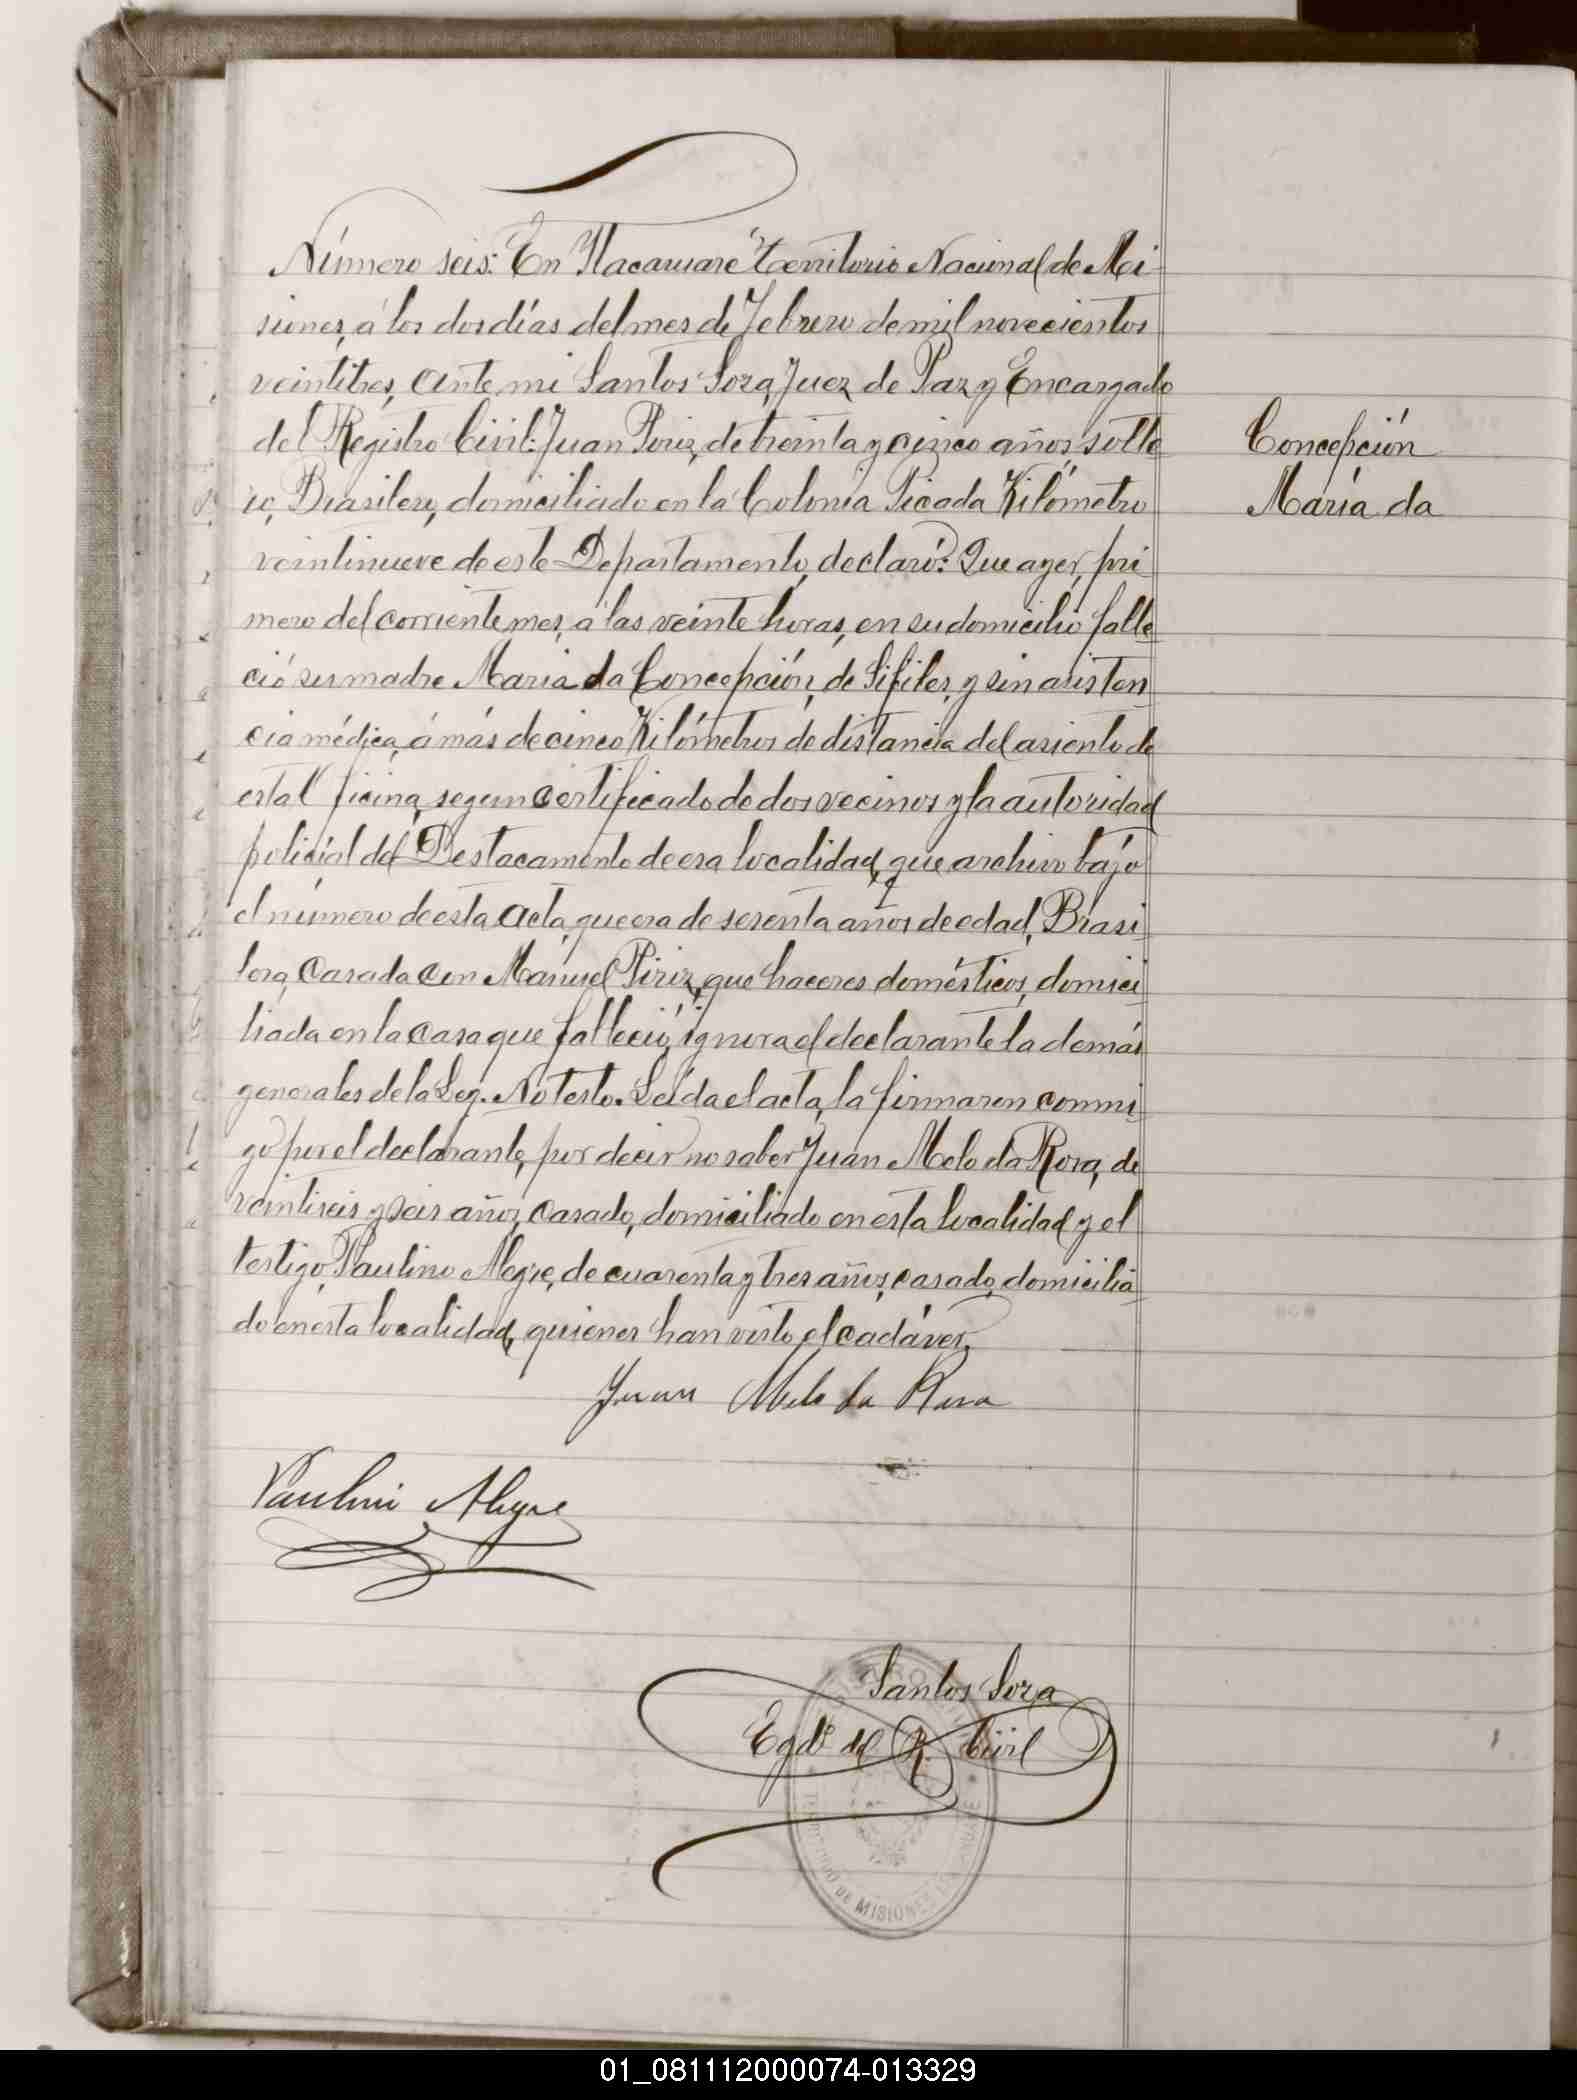 Número seis: En Itacaruaré Territorio Nacional de Mi-
siones, á los dos días del mes de Febrero de mil novecientos
veintitres, ante mi Santos Soza, Juez de Paz y Encargado
del Registro Civil: Juan Piriz, de treinta y cinco años solte
ro, Brasilero, domiciliado en la Colonia Picada Kilómetro
veintinueve de este Departamento, declaró: Que ayer, pri
mero del corriente mes, á las veinte horas, en su domicilio falle
ció su madre Maria da Concepción, de Sifiles, y sin asisten
cia médica, á más de cinco Kilómetros de distancia del asiento de
esta Oficina, segun certificado de dos vecinos y la autoridad
policial del Destacamento de esa localidad, que archivo bájo
el número de esta acta, que era de sesenta años de edad, Brasi
lera, Casada con Manuel Piriz, que haceres domésticos, domici
liada en la casa que falleció, ignora el declarante la demás
generales de la Ley. No testo. Leída el acta, la firmaron conmi
go por el declarante, por decir no saber Juan Melo da Rosa, de
veintiseis y seis años, casado, domiciliado en esta localidad y el
testigo, Paulino Alegre, de cuarenta y tres años, casado, domicilia
do en esta localidad, quienes han visto el cadáver.
Juan Melo da Rosa
Paulino Alegre
Santos Soza
Egdo del R. Civil
Concepción
María da
MISIONES
01_081112000074-013329